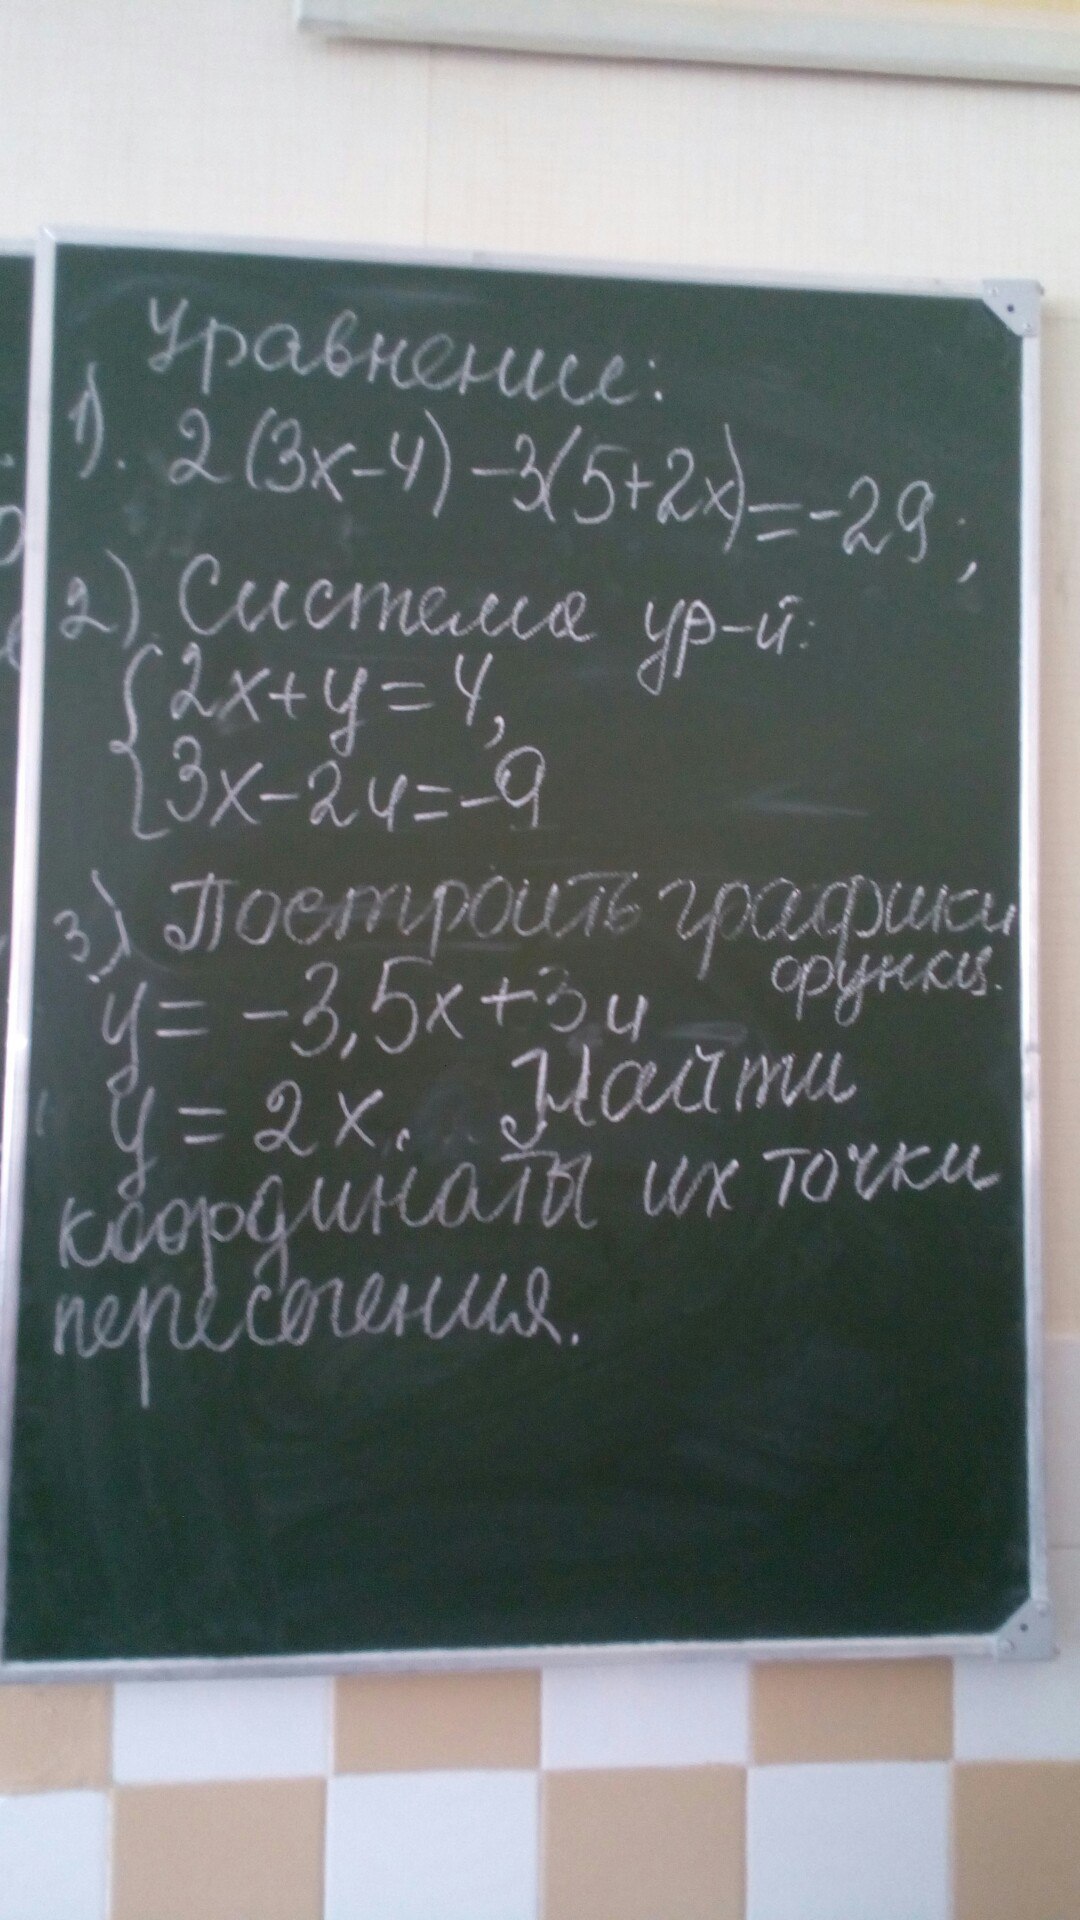 Уравнение:
1). 2(3х-4)-3(5+2х)=-29;
2) Система ур-й:
{2х+у=4,
3х-2у=-9
3) Построить графики
функц.
у= -3,5х+3 и
у=2х. Найти
координаты их точки
пересечения.